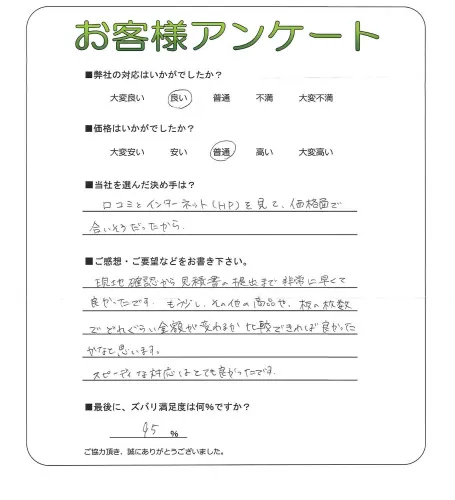 お客様アンケート
■弊社の対応はいかがでしたか？
大変良い 良い 普通 不満 大変不満
■価格はいかがでしたか？
大変安い 安い 普通 高い 大変高い
■当社を選んだ決め手は？
口コミとインターネット(HP)を見て、価格面で
合いそうだったから.
■ご感想・ご要望などをお書き下さい。
現地確認から見積書の提出まで非常に早くて
良かったです. もう少し、その他の商品や、板の枚数
でどれぐらい金額が変わるか比較できれば良かった
かなと思います。
スピーディな対応はとても良かったです.
■最後に、ズバリ満足度は何％ですか？
95 ％
ご協力頂き、誠にありがとうございました。